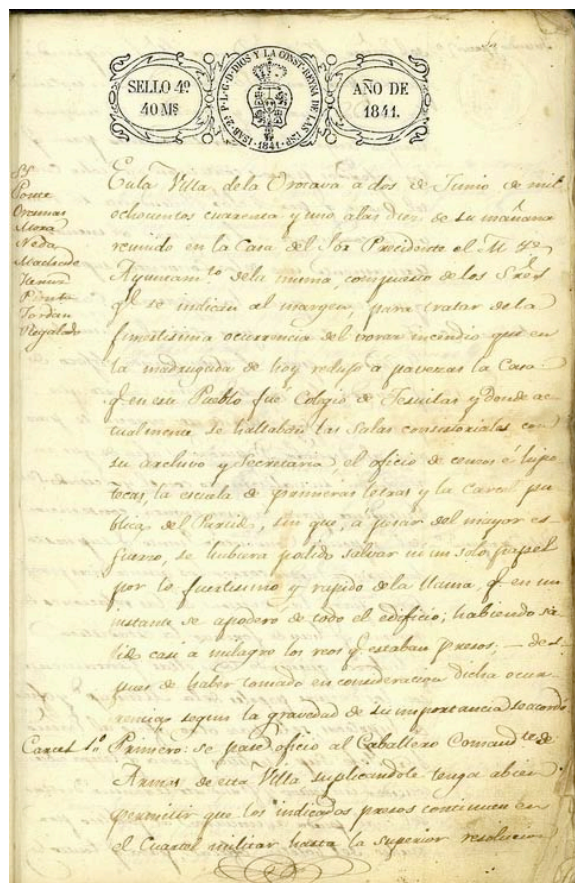 SELLO 4º
40 Mˢ
ISAB. 2ª P. L. G. D. DIOS Y LA CONST. REYNA DE LAS ESP.
1841
AÑO DE
1841.
SS
Ponce
Mora
Neda
Machado
Pinto
Jordan
Regalado
En la Villa de la Orotava a dos de Junio de mil
ochocientos cuarenta y uno a las diez de su mañana
reunido en la Casa del Sor Presidente el M. Ye
Ayuntamto. de la misma, compuesto de los Sres
qe se indican al margen, para tratar de la
funestisima ocurrencia del voraz incendio que en
la madrugada de hoy redujo a pavezas la Casa
qe en este Pueblo fué Colegio de Jesuitas y donde ac
tualmente se hallaban las Salas consistoriales con
su archivo y Secretaria el oficio de censos é hipo
tecas, la escuela de primeras letras y la Carcel pu
blica del Partido, sin que, a pesar del mayor es-
fuerzo, se hubiera podido salvar ni un solo papel
por lo fuertisimo y rapido de la llama, qe en un
instante se apodero de todo el edificio; habiendo sa
lido casi a milagro los reos qe estaban presos; — des-
pues de haber tomado en consideracion dicha ocur-
rencia segun la gravedad de su importancia se acordó
Carcel 1º Primero: se pase oficio al Caballero Comandte de
Armas de esta Villa suplicandole tenga abien
permitir que los indicados presos continuen en
el Cuartel militar hasta la superior resolucion